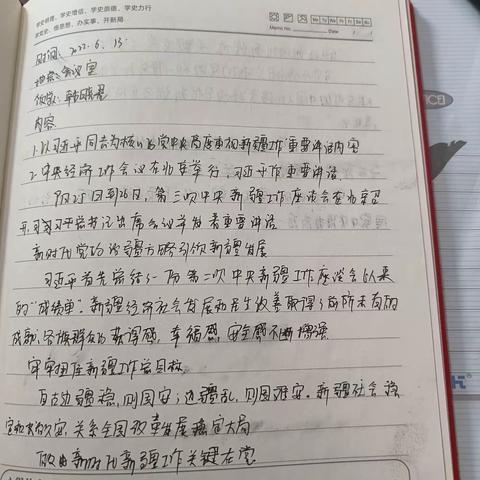 学史明理、学史增信、学史崇德、学史力行
学党史、悟思想、办实事、开新局
Memo No.
Date
Mo Tu We Th Fr Sa Su
时间：2022.6.13.
地点：会议室
内容
1.以习近平同志为核心的党中央高度重视新疆工作重要讲话内容
2.中央经济工作会议在北京举行，习近平作重要讲话.
9月25日到26日，第三次中央新疆工作座谈会在北京召
开，习近平总书记出席会议并发表重要讲话
新时代党的治疆方略引领新疆发展
习近平首先总结了一份第二次中央新疆工作座谈会以来
的“成绩单”.新疆经济社会发展和民生改善取得了前所未有的
成就，各族群众的获得感，幸福感，安全感不断增强.
牢牢扭住新疆工作总目标.
自古边疆稳，则国安；边疆乱，则国难安.新疆社会稳
定和长治久安，关系全国改革发展稳定大局
做好新时代新疆工作关键在党